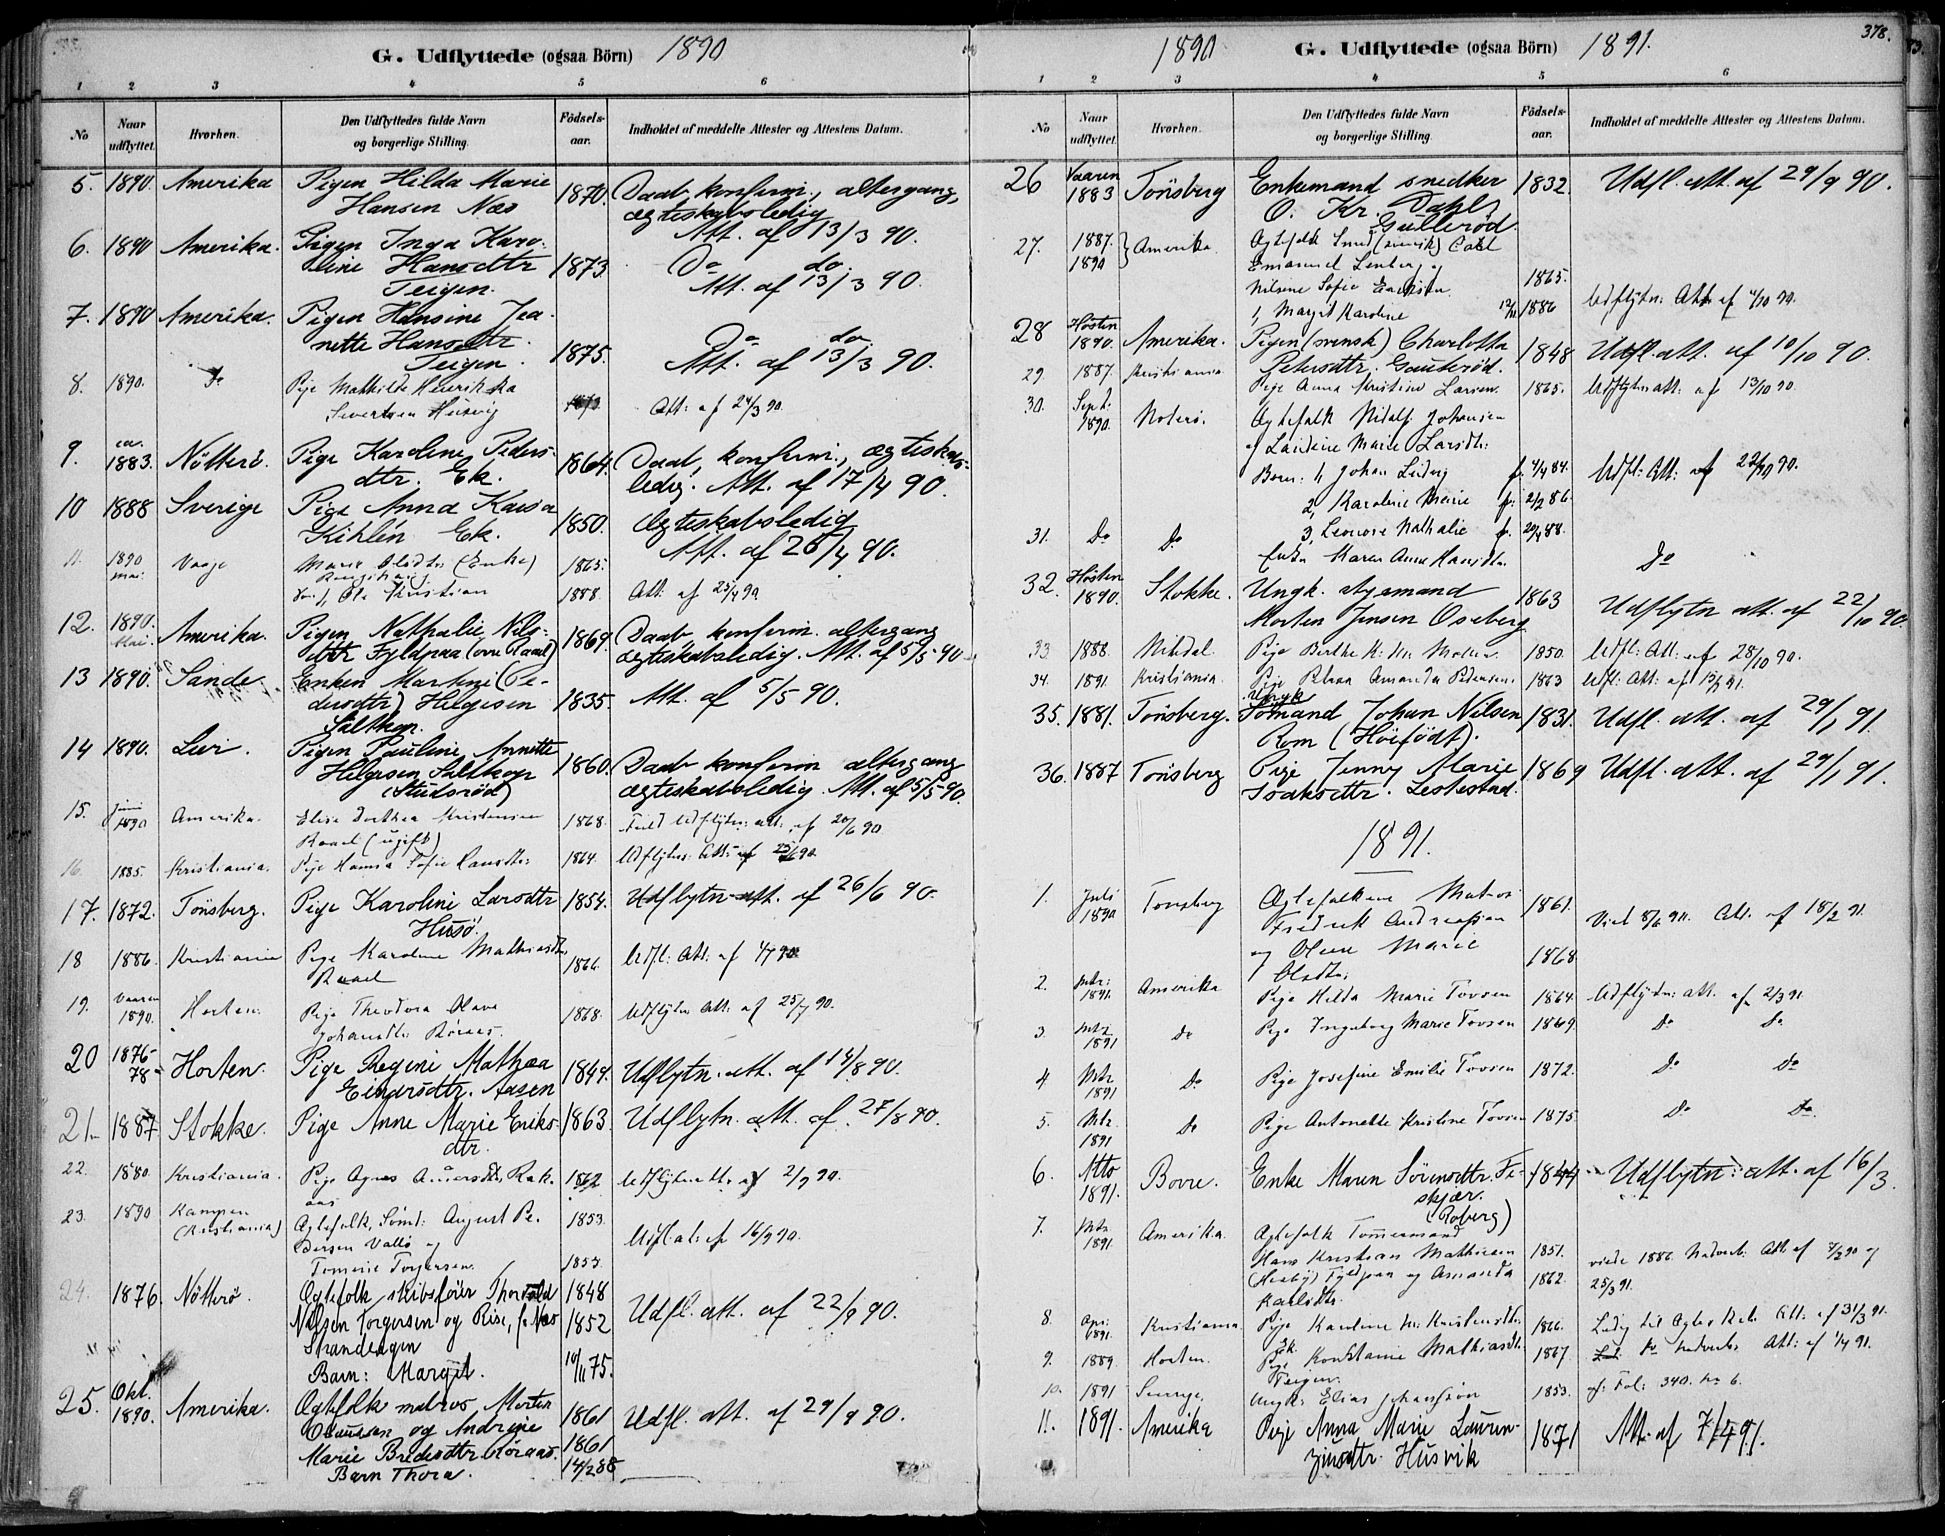 G. Udflyttede (ogsaa Börn) 1890
1 2 3 4 5 6
No
Naar udflyttet.
Hvorhen.
Den Udflyttedes fulde Navn og borgerlige Stilling.
Födsels-aar.
Indholdet af meddelte Attester og Attestens Datum.
5. 1890. Amerika Pigen Hilda Marie 1870. Daab, konfirm., altergang,
Hansen Næs ægteskabsledig
Att. af 13/3 90.
6. 1890 Amerika. Pigen Inga Karo-
line Hansdtr 1873 Do do.
Teigen. Att. af 13/3 90.
7. 1890 Amerika. Pigen Hansine Jea-
nette Hansdtr. Do do.
Teigen. 1875. Att. af 13/3 90.
8. 1890. Do Pige Mathilde Henrikka
Sivertsen Husvig Att: af 24/3 90.
9. ca. 1883. Nötterö. Pige Karoline Peders- 1864. Daab, konfirm., ægteskabs-
dtr. Ek. ledig. Att. af 17/4 90.
10 1888 Sverige Pige Anna Kaisa 1850. Ægteskabsledig
Kihlén Ek. Att. af 26/4 90.
11. 1890 mai: Vaage Marie Olsdtr (Enke) 1865.
1, Ole Kristian 1888. Att: af 25/4 90
12. 1890. Mai. Amerika. Pigen Nathalie Nils- 1869. Daab, konfirm. altergang
dtr Fyldpaa (ovre Raael) ægteskabsledig. Att. af 5/5 90
13 1890. Sande. Enken Martine (Pe-
dersdtr) Helgesen 1835. Att. af 5/5 90.
Saltkop.
14 1890. Lier. Pigen Pauline Annette 1860. Daab konfirm altergang
Helgesen Saltkop ægteskabsledig. Att. af 5/5 90.
(Studsröd)
15. Juni 1890 Amerika. Elise Dorthea Kristensen 1868. Fuld Udflytn: att: af 20/6 90
Raael (ugift)
16. 1885. Kristiania. Pige Hanna Sofie Hansdtr: 1864. Udflytn: Att: af 90
17. 1872. Tönsberg. Pige Karoline Larsdtr 1854. Udflytn-att. af 26/6 90.
Husö.
18 1886. Kristiania Pige Karoline Mathiasdtr. 1866. Udfl: Att: af 4/7 90
Raael
19. Vaaren 1890. Horten. Pige Theodora Olava 1868. Udflytn Att: af 25/7 90.
Johansdtr
20 1876-78- Horten. Pige Regine Mathea 1844. Udflytn. att. af 14/8 90.
Einarsdtr. Aasen
21. 1887 Stokke. Pige Anne Marie Eriks- 1863. Udflytn. att. af 27/8 90.
dtr.
22. 1880. Kristiania. Pige Agnes Andersdtr. Rak- 1862 Udflytn att: af 2/9 90.
aas
23. 1890 Kampen (Kristiania) Ægtefolk, Sömd: August Pe- 1853.
dersen Vallö og Udfl. at: af 16/9 90.
Tomine Torjersen. 1853
24. 1876. Nötterö. Ægtefolk skibsförer Thorvald 1848
Nilsen Torgersen og Rise, f. Næs 1852 Udfl. att. af 22/9 90.
Strandengen
Barn: Margit. 10/11 75.
25. Okt. 1890. Amerika. Ægtefolk matros Morten 1861 Udfl. att. af 29/9 90.
Claussen og Andrine
Marie Bredesdtr 1861
Barn Thora. 14/2 88
378.
1890 G. Udflyttede (ogsaa Börn) 1891.
1 2 3 4 5 6
No
Naar udflyttet.
Hvorhen.
Den Udflyttedes fulde Navn og borgerlige Stilling.
Födsels-aar.
Indholdet af meddelte Attester og Attestens Datum.
26 Vaaren 1883 Tönsberg Enkemand snedker 1832. Udfl. att. af 29/9 90.
O. Kr. Dahl,
Gulleröd.
27. 1887. 1890 } Amerika Ægtefolk Smed (svensk) Carl
Emanuel og
Nilsine Sofie 1865.
1, Margit Karoline 1886 Udflytn: Att: af 4/10 90.
28 Hösten 1890. Amerika. Pigen (svensk) Charlotta 1848 Udfl. att. af 10/10 90.
Petersdtr. Gauteröd.
29. 1887. Kristiania Pige Anna Kristine Larsen 1865. Udflytn att: af 13/10 90.
30. Sept. 1890. Noterö. Ægtefolk Johansen
og Marie Larsdtr:
Born: 1, Johan Ludvig f. 4/4 84. Udfl: Att: af 22/10 90.
2, Karoline Marie f: 2/2 86.
3, Leonore Nathalie f. 88.
31. Do Do Enke Maren Anne Hansdtr. Do
32. Hösten 1890. Stokke. Ungk. styrmand 1863
Morten Jensen Oseberg Udflytn att. af 22/10 90.
33 1888. Pige Birthe 1850. Udfl: Att: af 28/10 90.
34. 1891. Kristiania. Pige Amanda Pedersen. 1863 Udfl: Att: af 91.
35. 1881. Tönsberg. Ungk Sömand Johan Nilsen 1831. Udfl. att. af 29/1 91.
Rom (Höifödt).
36. 1887 Tönsberg Pige Jenny Marie 1869 Udfl. att. af 29/1 91.
Isaksdtr. Lestestad.
1891.
1. Juli 1890 Tonsberg Ægtefolkene Matros 1861.
Fredrik Andreassen Viet 8/6 90. Att. af 18/2 91.
og Oline Marie 1868
Olsdtr.
2. Mtz: 1891. Amerika Pige Hilda Marie Tovsen 1864 Udflytn: att. af 2/3 91
3. Mtz 1891 Do Pige Ingeborg Marie Tovsen 1869 Do Do
4 Mtz 1891 Do Pige Josefine Emilie Tovsen 1872. Do Do
5. Mtz. 1891 Do Pige Antonette Kristine Tovsen 1875. Do Do
6. Mtz 1891. Borre. Enke Maren Sörensdtr. Fi- 1844 Udflytn: att. af 16/3
skjær.
(Roberg)
7. Mtz 1891. Amerika Ægtefolk Tommermand
Hans Kristian Mathisen 1851. viede 1886. Nadverb: Att. af 7/2 90 og
Fyldpaa og Amanda 1862. 25/3 91.
Karlsdtr.
8. Apr: 1891. Kristiania. Pige Karoline Kristensdtr. 1866. Ledig til Ægtesk. Att: af 31/3 91.
Ek.
9. 1889. Horten. Pige Konstanse Mathiasdtr 1867. Do Nadverb: Att: af 1/4 91.
Teigen.
10. 1891 Sverige Ungk: Elias Johansson 1853. cf: Fol: 340. No 6.
11. 1891. Amerika Pige Anna Marie Lauren- 1871 Att. af 7/4 91.
zinsdtr. Husvik